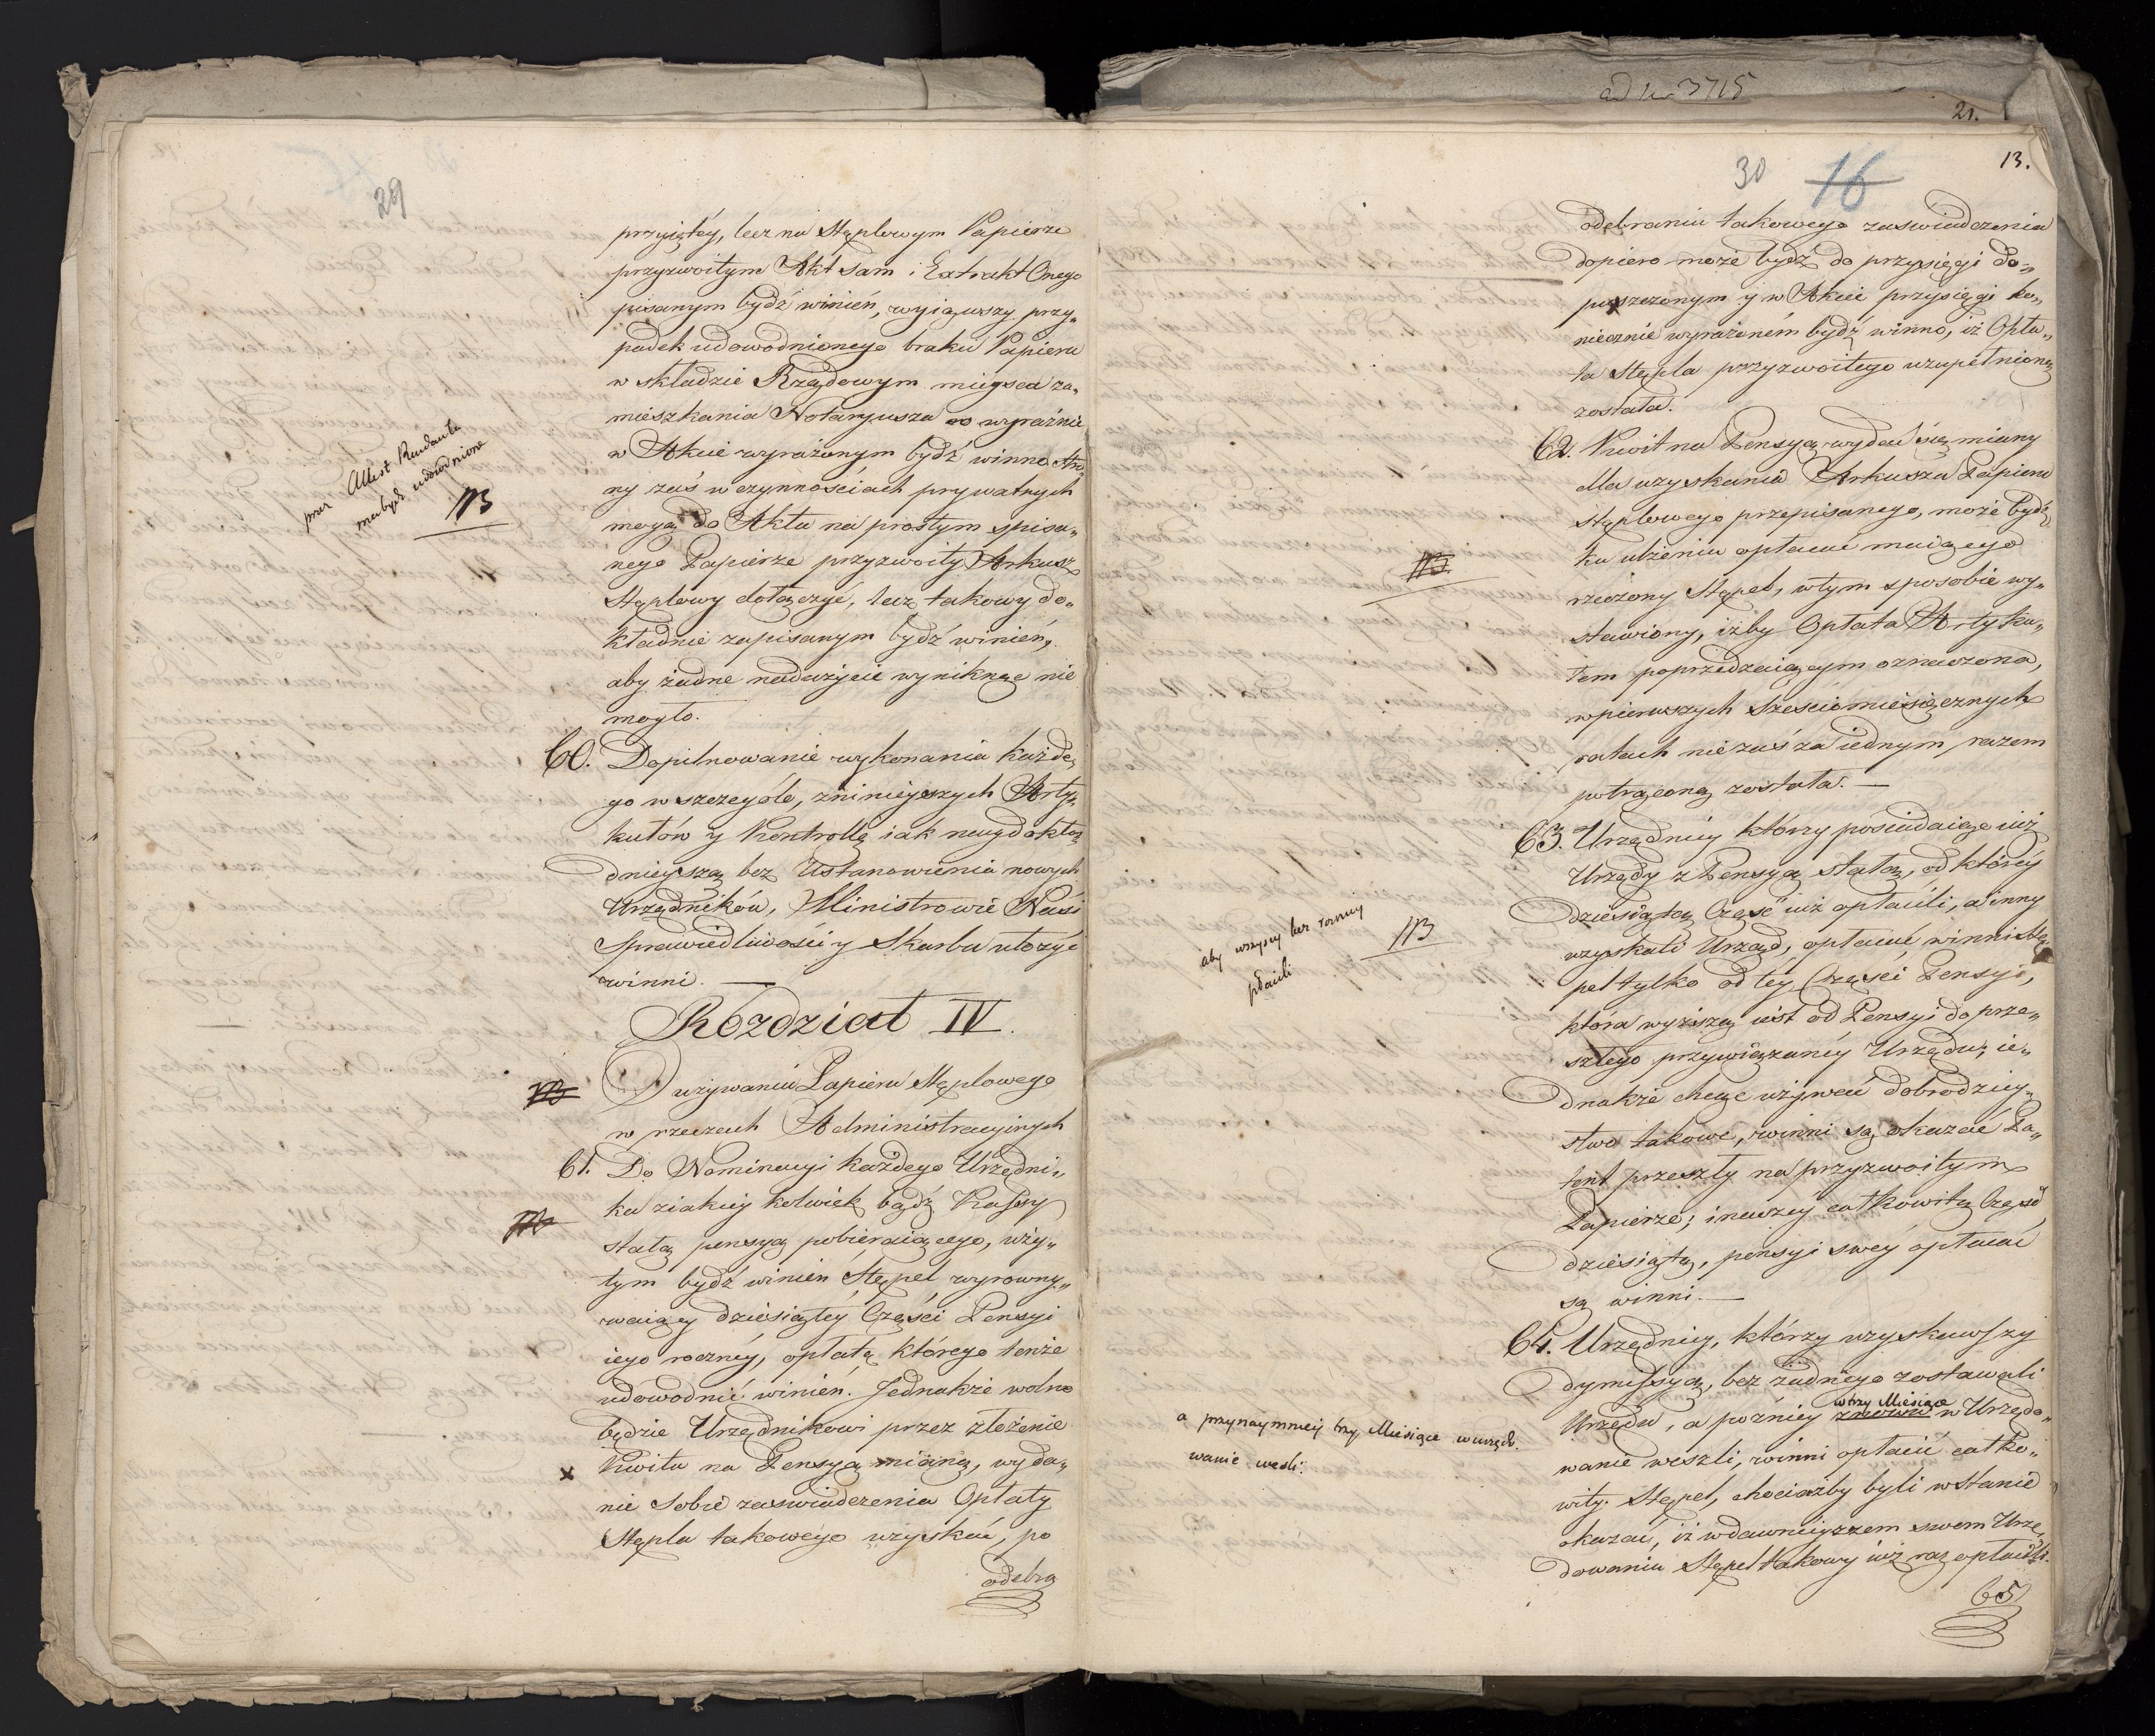 29
przyiętéy, lecz na Stęplowym Papierze
przyzwoitym Akt sam i Extrakt Onego
pisanym bydź winień, wyiąwszy przy„
padek udowodnionego braku Papieru
w składzie Rządowym mieysca za„
mieszkania Notaryusza co wyraźnie
w Akcie wyrażonym bydź winno. Stro„
ny zaś w czynnościach prywatnych
mogą do Aktu na prostym spisa„
nego Papierze przyzwoity Arkusz
Stęplowy dołączyć, lecz takowy do„
kładnie zapisanym bydź winień,
aby żadne nadużycie wyniknąc nie
mogło.
przez Attest Rendanta
ma bydź udowodnione
NB
60. Dopilnowanie wykonania każde„
go w szczególe, z ninieyszych Arty„
kułów y Kontrollę iak naydokła„
dnieyszą bez Ustanowienia nowych
Urzędników, Ministrowie Nasi
Sprawiedliwości y Skarbu ułożyć
winni. —
Rozdział IV.
NB
O używaniu Papieru Stęplowego
w rzeczach Administracyinych
61. Do Nominacyi każdego Urzędni„
ka z iakiey kolwiek bądź Kassy
NB
stałą pensyą pobieraiącego, uży„
tym bydź winien Stępel wyrowny„
waiący dziesiątey Części Pensyi
iego roczney, opłatę którego tenże
udowodnić winień. Jednakże wolno
będzie Urzędnikowi przez złożenie
x Kwitu na Pensyą mianą, wyda„
nie sobie zaswiadczenia Opłaty
Stępla takowego uzyskać, po
odebra
ad 3715
21.
13.
30 16
odebraniu takowego zaswiadczenia
dopiero może bydź do przysięgi do„
puszczonym y w Akcie przysięgi ko„
niecznie wyrażoném bydź winno, iż Opła„
ta Stępla przyzwoitego uzupełnioną
została.
62. Kwit na Pensyą wydać się miany
dla uzyskania Arkusza Papieru
stęplowego przepisanego, może bydź
NB
ku ulżeniu opłacać maiącego
rzeczony Stępel, w tym sposobie wy„
stawiony, iżby Opłata Artyku„
łem poprzedzaiącym oznaczona,
w pierwszych Sześciomiesięcznych
ratach nie zaś za iednym razem
potrąconą została. —
63. Urzędnicy którzy posiadaiąc iuż
Urzędy z Pensyą stałą, od którey
dziesiątą Część iuż opłacili, a inny
uzyskali Urząd, opłacać winni Stę„
pel tylko od tey Części Pensyi,
aby wszyscy bez rożnicy
płacili
NB
która wyższą iest od Pensyi do prze„
szłego przywiązaney Urzędu; ie„
dnakże chcąc używać dobrodziey„
stwa takowe, winni są okazać Pa„
tent przeszły na przyzwoitym
Papierze; inaczey całkowitą Część
dziesiątą, pensyi swey opłacać
są winni. —
64. Urzędnicy, którzy uzyskawszy
dymissyą, bez żadnego zostawali
Urzędu, a pozniey znowu w Urzędo„
w trzy Miesiące
a przynaymniey trzy Miesiące w urzędo„
wanie weszli.
wanie weszli, winni opłacić całko„
wity Stępel, chociażby byli w stanie
okazać, iż w dawnieyszem swem Urzę„
dowaniu Stępel takowy iuż raz opłacili.
65